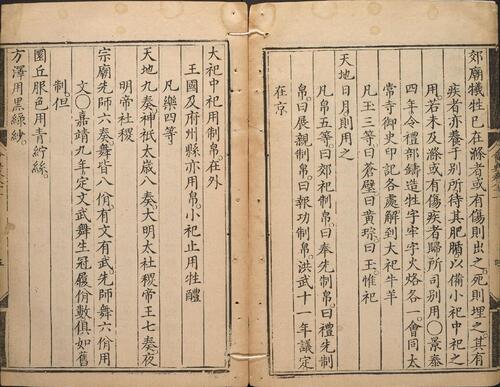 郊廟犧牲已在滌者或有傷則出之。死則埋之。其有
疾者亦養于別所待其肥腯以備小祀中祀之
用若未及滌或有傷疾者歸所司別用〇景泰
四年令禮部鑄造牲字牢字火烙各一會同太
常寺御史印記各處解到大祀牛羊
凡玉三等曰蒼璧曰黃琮曰玉惟祀
天地日月則用之
凡帛五等曰郊祀制帛曰奉先制帛曰禮先制
帛曰展親制帛曰報功制帛洪武十一年議定
在京
大祀中祀用制帛。在外
王國及府州縣亦用帛。小祀止用牲醴
凡樂四等
天地九奏。神祇太歲八奏。大明太社稷帝王七奏。夜
明帝社稷
宗廟先師六奏。舞皆八佾。有文有武。先師舞六佾用
文〇嘉靖九年定文武舞生冠履佾數俱如舊
制。但
圜丘服色用青紵絲。
方澤用黑綠紗。